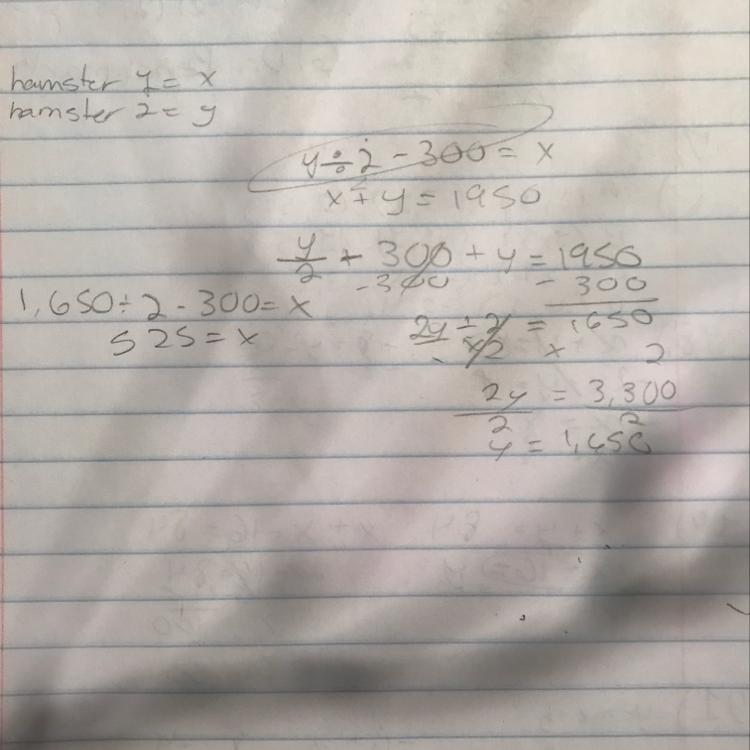 hamster 1 = x
hamster 2 = y
y ÷ 2 - 300 = x
x + y = 1950
y/2 + 300 + y = 1950
-300 - 300
1,650 ÷ 2 - 300 = x
2y ÷ 2 = 1650
525 = x
x2 x 2
2y = 3,300
2 2
y = 1,650